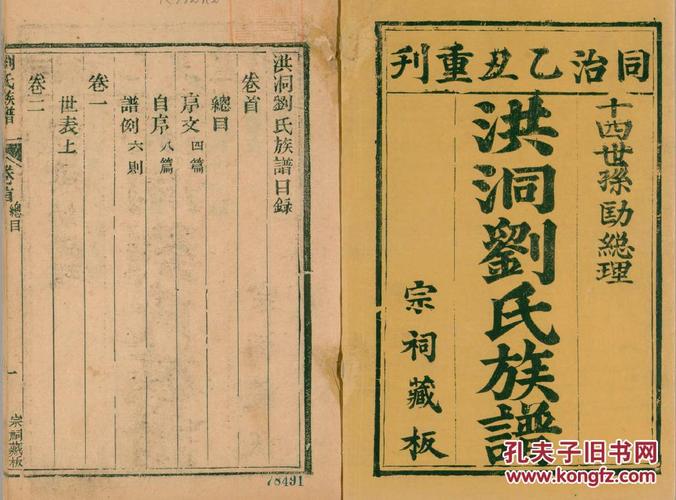 同治乙丑重刊
十四世孫勷總理
洪洞劉氏族譜
宗祠藏板
洪洞劉氏族譜目錄
卷首
總目
序文四篇
自序八篇
譜例六則
卷一
世表上
卷二
劉氏族譜
卷首
總目
一
宗祠藏板
78491
孔夫子旧书网
www.kongfz.com